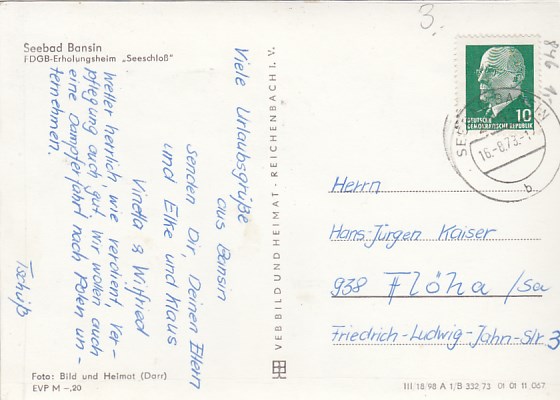 3.
Seebad Bansin
FDGB-Erholungsheim „Seeschloß"
Viele Urlaubsgrüße
aus Bansin
senden Dir, Deinen Eltern
und Elke und Klaus
Vinetta & Wilfried
Wetter herrlich, wie verdient, Ver-
pflegung auch gut. Wir wollen auch
eine Dampferfahrt nach Polen un-
ternehmen.
Tschüß
Foto: Bild und Heimat (Darr)
EVP M –,20
VEB BILD UND HEIMAT · REICHENBACH I. V.
10
DEUTSCHE
DEMOKRATISCHE REPUBLIK
16.-8.73.-
b
846
Herrn
Hans-Jürgen Kaiser
938 Flöha /Sa
Friedrich-Ludwig-Jahn-Str. 3
III/18/98 A 1/B 332/73 01 01 11 067